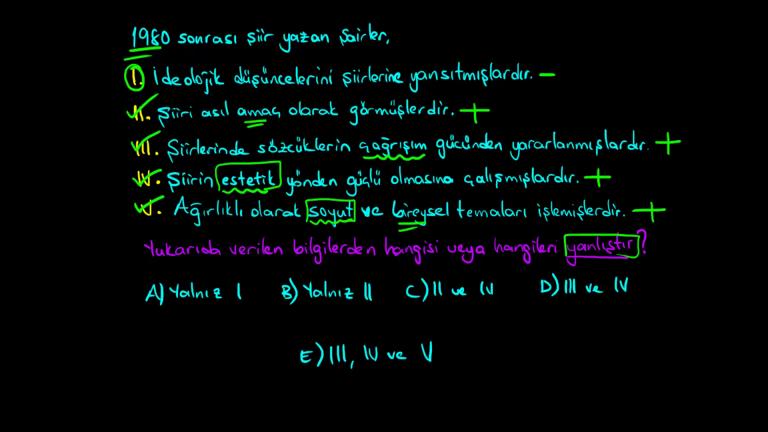 1980 sonrası şiir yazan şairler,
I. İdeolojik düşüncelerini şiirlerine yansıtmışlardır. –
II. Şiiri asıl amaç olarak görmüşlerdir. +
III. Şiirlerinde sözcüklerin çağrışım gücünden yararlanmışlardır. +
IV. Şiirin estetik yönden güçlü olmasına çalışmışlardır. +
V. Ağırlıklı olarak soyut ve bireysel temaları işlemişlerdir. +
Yukarıda verilen bilgilerden hangisi veya hangileri yanlıştır?
A) Yalnız I B) Yalnız II C) II ve IV D) III ve IV
E) III, IV ve V